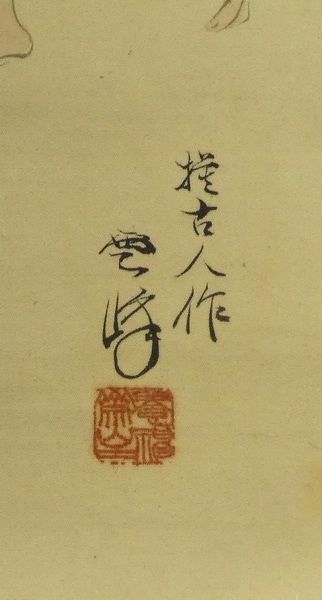 擬古人作
雲峰